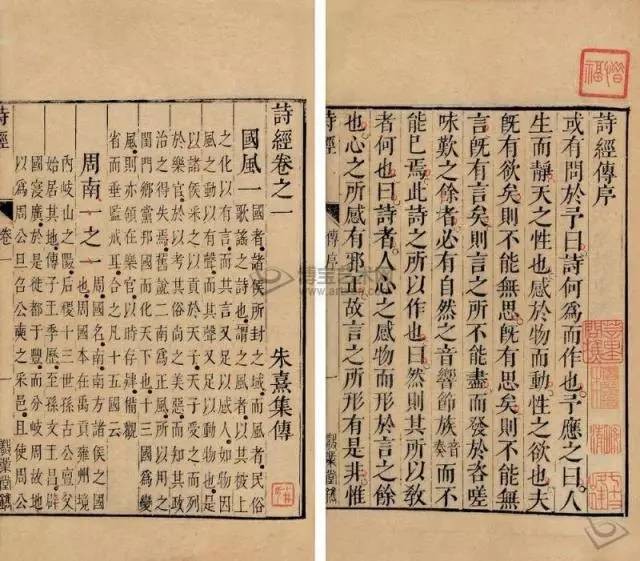 詩經傳序
或有問於予曰詩何為而作也予應之曰人
生而靜天之性也感於物而動性之欲也夫
既有欲矣則不能無思既有思矣則不能無
言既有言矣則言之所不能盡而發於咨嗟
味歎之餘者必有自然之音響節族音奏而不
能已焉此詩之所以作也曰然則其所以敎
者何也曰詩者人心之感物而形於言之餘
也心之所感有邪正故言之所形有是非惟
詩經 傳序 一
詩經卷之一
朱熹集傳
國風一 國者諸侯所封之域而風者民俗
歌謠之詩也謂之風者以其被上
之化以有言而其言又足以感人如物因
風之動以有聲而其聲又足以動物也是
以諸侯采之以貢於天子天子受之而列
於樂官於以考其俗尚之美惡而知其政
治之得失焉舊說二南為正風所以用之
閨門鄉黨邦國而化天下也十三國為變
風則亦領在樂官以時存肄備觀
省而垂監戒耳合之凡十五國云
周南一之一 周國名南南方諸侯之國
也周國本在禹貢雍州境
內岐山之陽后稷十三世孫古公亶父
始居其地傳子王季歷至孫文王昌辟
國寖廣於是徙都于豐而分岐周故地
以為周公旦召公奭之采邑且使周公
詩經 卷一 一 業堂鐫